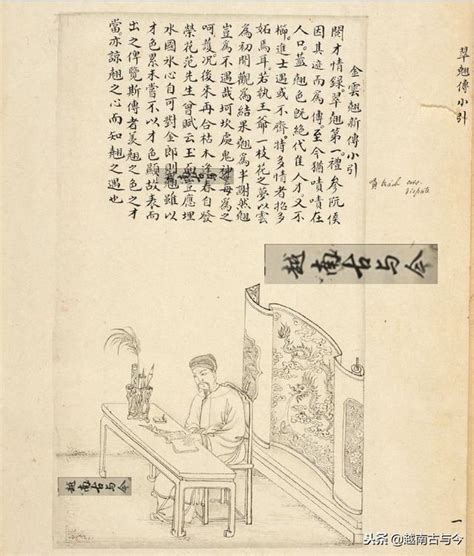 翠翹傳小引
金雲翹新傳小引
閱才情錄翠翹第一禮參阮侯
因其迹而為傳至今猶嘖嘖在
人口。蓋翹色既絶代隹人才又不
櫛進士遇或不齊持多情者招多
妬焉耳若執王爺一枝花之夢以雲
為初開觀為結果翹為半謝然翹
豈為不遇哉坎處鬼神為之
呵護况後來再合枯木春自發
榮花范先生曾賦云玉血應埋
水國氷心自可對金郎則翹雖以
才色累未嘗不以才色顯故表而
出之俾覽斯傳者羨翹之色之才
當亦諒翹之心而知翹之遇也
dispute
越南古与今
越南古与今
越南古与今
一
头条 @越南古与今